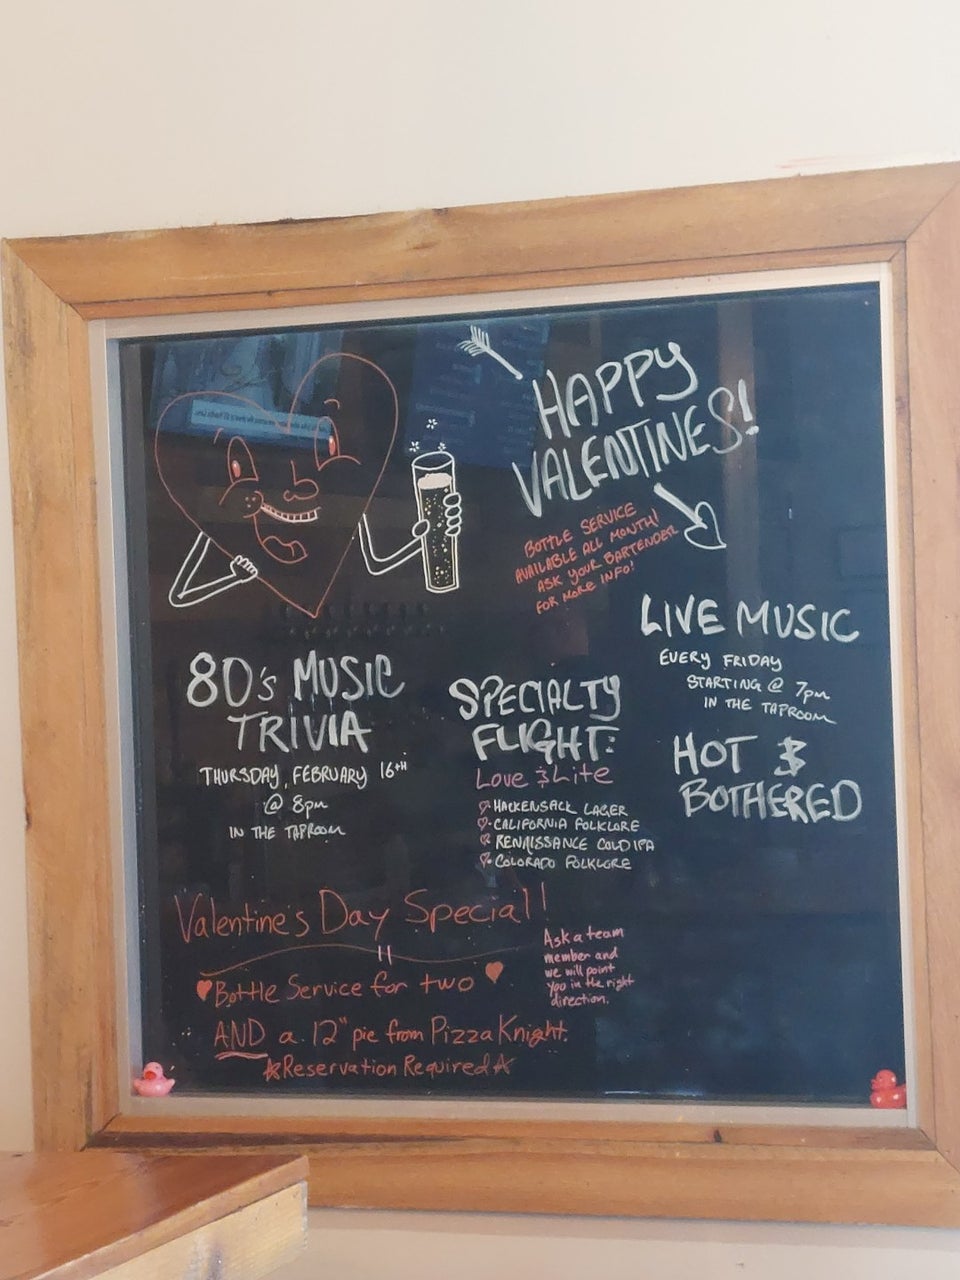 HAPPY
VALENTINES!
BOTTLE SERVICE
AVAILABLE ALL MONTH!
ASK YOUR BARTENDER
FOR MORE INFO!
LIVE MUSIC
EVERY FRIDAY
STARTING @ 7pm
IN THE TAPROOM
80's MUSIC
TRIVIA
THURSDAY, FEBRUARY 16TH
@ 8pm
IN THE TAPROOM
SPECIALTY
FLIGHT:
Love & Lite
HACKENSACK LAGER
CALIFORNIA FOLKLORE
RENAISSANCE COLD IPA
COLORADO FOLKLORE
HOT &
BOTHERED
Valentine's Day Special!!
Bottle Service for two
AND a 12" pie from Pizza Knight.
Reservation Required
Ask a team
member and
we will point
you in the right
direction.